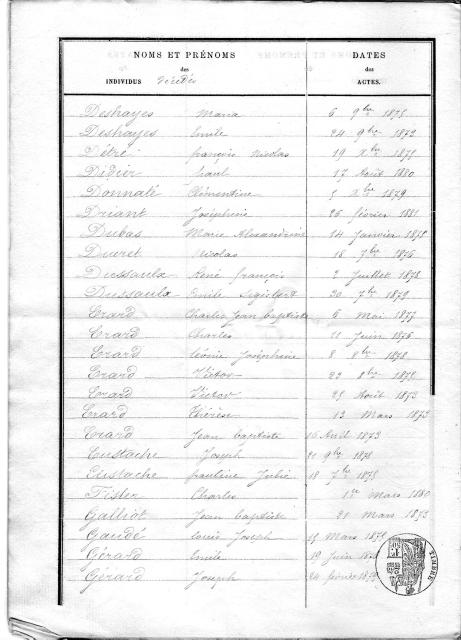 NOMS ET PRÉNOMS DATES
des des
INDIVIDUS Décédés ACTES.
Deshayes Maria 6 9bre 1875
Deshayes Emile 24 9bre 1872
Détré françois Nicolas 19 Xbre 1875
Didier Paul 17 Août 1880
Donnalé Clémentine 5 Xbre 1879
Driant Joséphine 26 février 1881
Dubas Marie Alexandrine 14 Janvier 1878
Nicolas 18 7bre 1876
Dussaulx René françois 2 Juillet 1878
Dussaulx Emile 30 7bre 1872
Erard Charles Jean baptiste 6 Mai 1877
Erard Charles 11 Juin 1876
Erard léonie Joséphine 8 8bre 1878
Erard Victor 22 8bre 1875
Erard Victor 25 Août 1873
Erard thérèse 13 Mars 1873
Erard Jean baptiste 16 Avril 1873
Eustache Joseph 21 9bre 1878
Eustache pauline Julie 18 7bre 1875
Fister Charles 1er Mars 1880
Galliot Jean baptiste 21 Mars 1873
Gaudé louis Joseph 15 Mars 1875
Gérard Emile 19 Juin
Gérard Joseph 24 février
TIMBRE